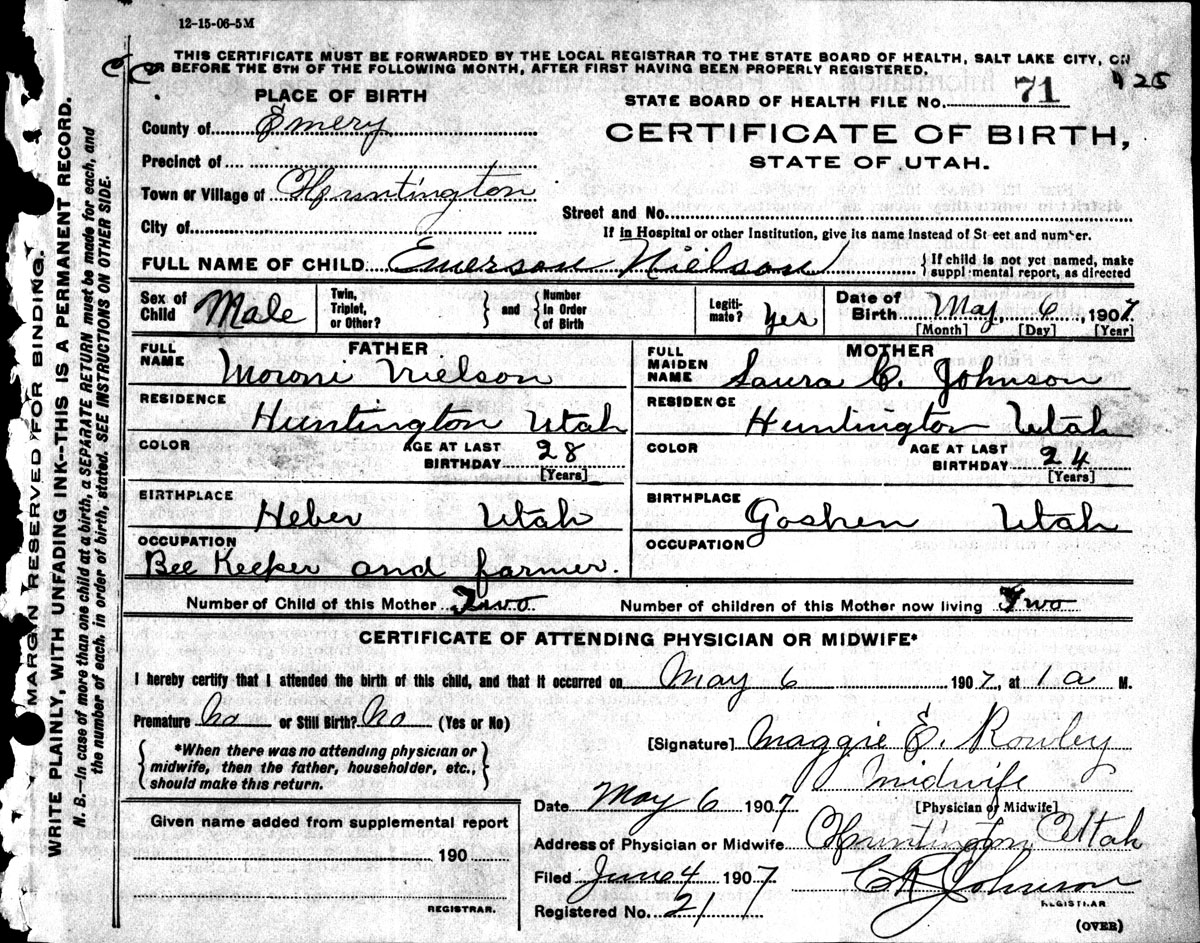 12-15-06-5M
THIS CERTIFICATE MUST BE FORWARDED BY THE LOCAL REGISTRAR TO THE STATE BOARD OF HEALTH, SALT LAKE CITY, ON
OR BEFORE THE 5TH OF THE FOLLOWING MONTH, AFTER FIRST HAVING BEEN PROPERLY REGISTERED.
PLACE OF BIRTH
STATE BOARD OF HEALTH FILE No. 71
County of Emery
CERTIFICATE OF BIRTH,
STATE OF UTAH.
Precinct of
Town or Village of Huntington
Street and No.
City of
If in Hospital or other Institution, give its name instead of St eet and number.
FULL NAME OF CHILD Emerson Nielson { If child is not yet named, make
suppl mental report, as directed
Sex of Child Male Twin, Triplet, or Other? } and { Number in Order of Birth Legiti- mate? Yes Date of Birth May 6, 1907
[Month] [Day] [Year]
FATHER
FULL NAME Moroni Nielson
RESIDENCE
Huntington Utah
COLOR AGE AT LAST BIRTHDAY 28
[Years]
BIRTHPLACE
Heber Utah
OCCUPATION
Bee Keeper and farmer.
MOTHER
FULL MAIDEN NAME Laura C. Johnson
RESIDENCE
Huntington Utah
COLOR AGE AT LAST BIRTHDAY 24
[Years]
BIRTHPLACE
Goshen Utah
OCCUPATION
Number of Child of this Mother Two Number of children of this Mother now living Two
CERTIFICATE OF ATTENDING PHYSICIAN OR MIDWIFE*
I hereby certify that I attended the birth of this child, and that it occurred on May 6 1907, at 1 a M.
Premature No or Still Birth? No (Yes or No)
{ *When there was no attending physician or
midwife, then the father, householder, etc.,
should make this return. }
[Signature] Maggie E. Rowley
Midwife
[Physician or Midwife]
Date May 6 1907
Address of Physician or Midwife Huntington Utah
Filed June 4 1907
C R Johnson
REGISTRAR
Registered No. 21
(OVER)
Given name added from supplemental report
190
REGISTRAR.
MARGIN RESERVED FOR BINDING.
WRITE PLAINLY, WITH UNFADING INK—THIS IS A PERMANENT RECORD.
N. B.—In case of more than one child at a birth, a SEPARATE RETURN must be made for each, and
the number of each, in order of birth, stated. SEE INSTRUCTIONS ON OTHER SIDE.